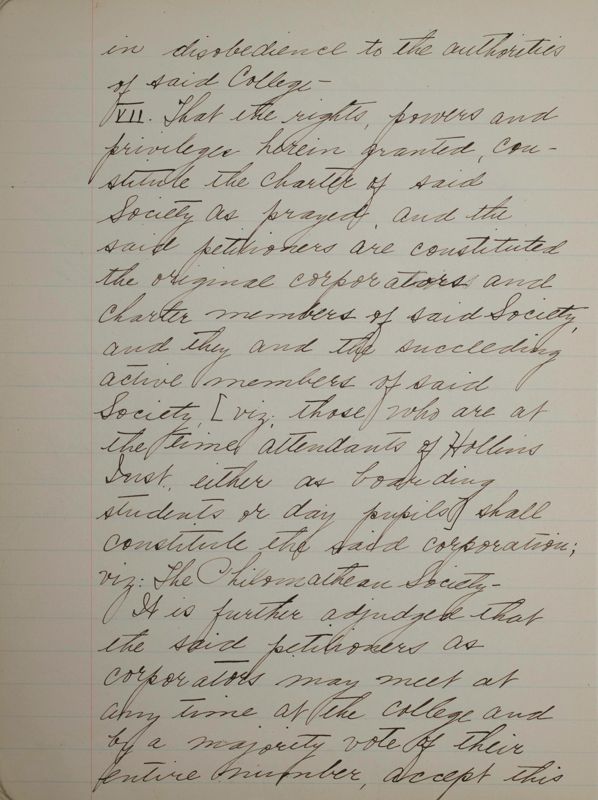 in disobedience to the authorities
of said College –
VII. That the rights, powers and
privileges herein granted, con-
stitute the charter of said
Society as prayed, and the
said petitioners are constituted
the original corporators and
charter members of said Society,
and they and the succeeding
active members of said
Society, [viz; those who are at
the time, attendants of Hollins
Inst. either as boarding
students or day pupils] shall
constitute the said corporation;
viz: The Philomathean Society –
It is further adjudged that
the said petitioners as
corporators may meet at
any time at the college and
by a majority vote of their
entire number, accept this